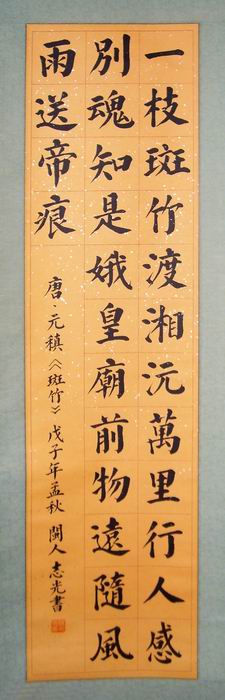 一枝斑竹渡湘沅萬里行人感
別魂知是娥皇廟前物遠隨風
雨送帝痕
唐·元稹《斑竹》戊子年孟秋 閩人 志光書